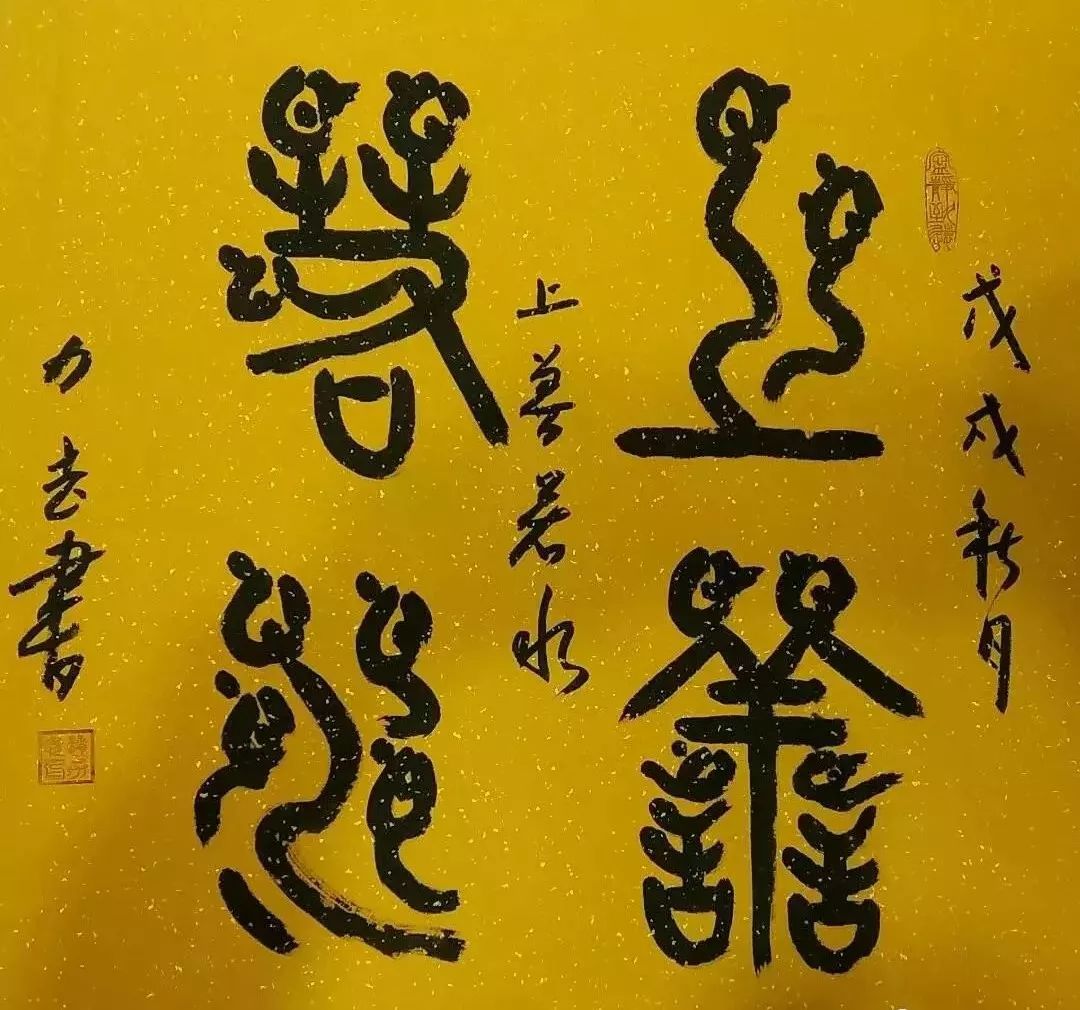 戊戌秋月
上善
上善若水
若水
力 書